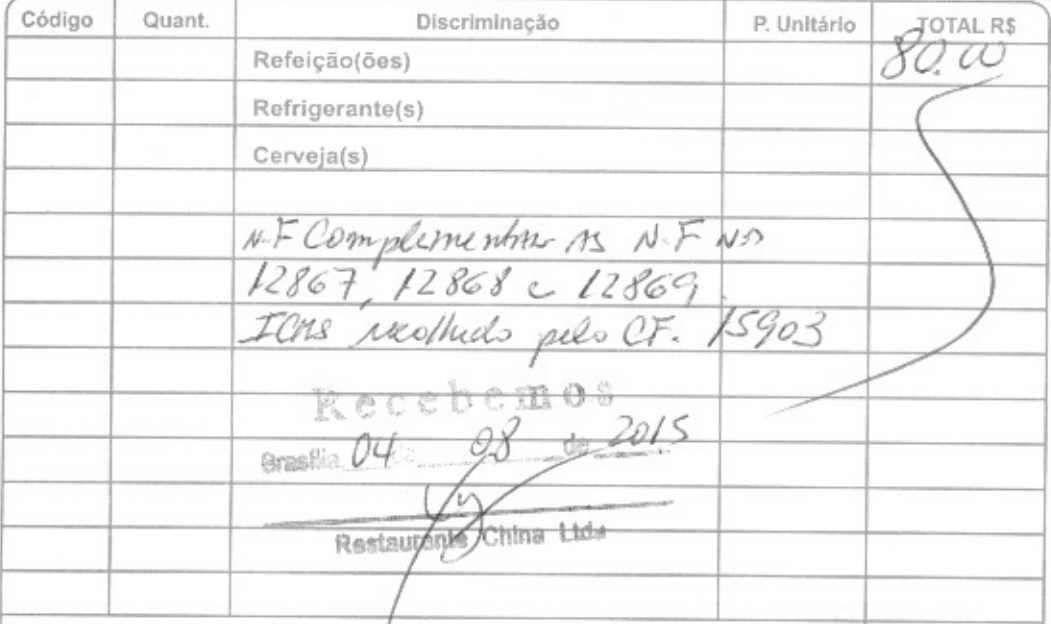 Código Quant. Discriminação P. Unitário TOTAL R$
Refeição(ões) 80.00
Refrigerante(s)
Cerveja(s)
N.F Complementar AS N.F Nos
12867, 12868 e 12869.
ICMS recolhido pelo CF. 15903
Recebemos
Brasília 04 de 08 de 2015
Restaurante China Ltda